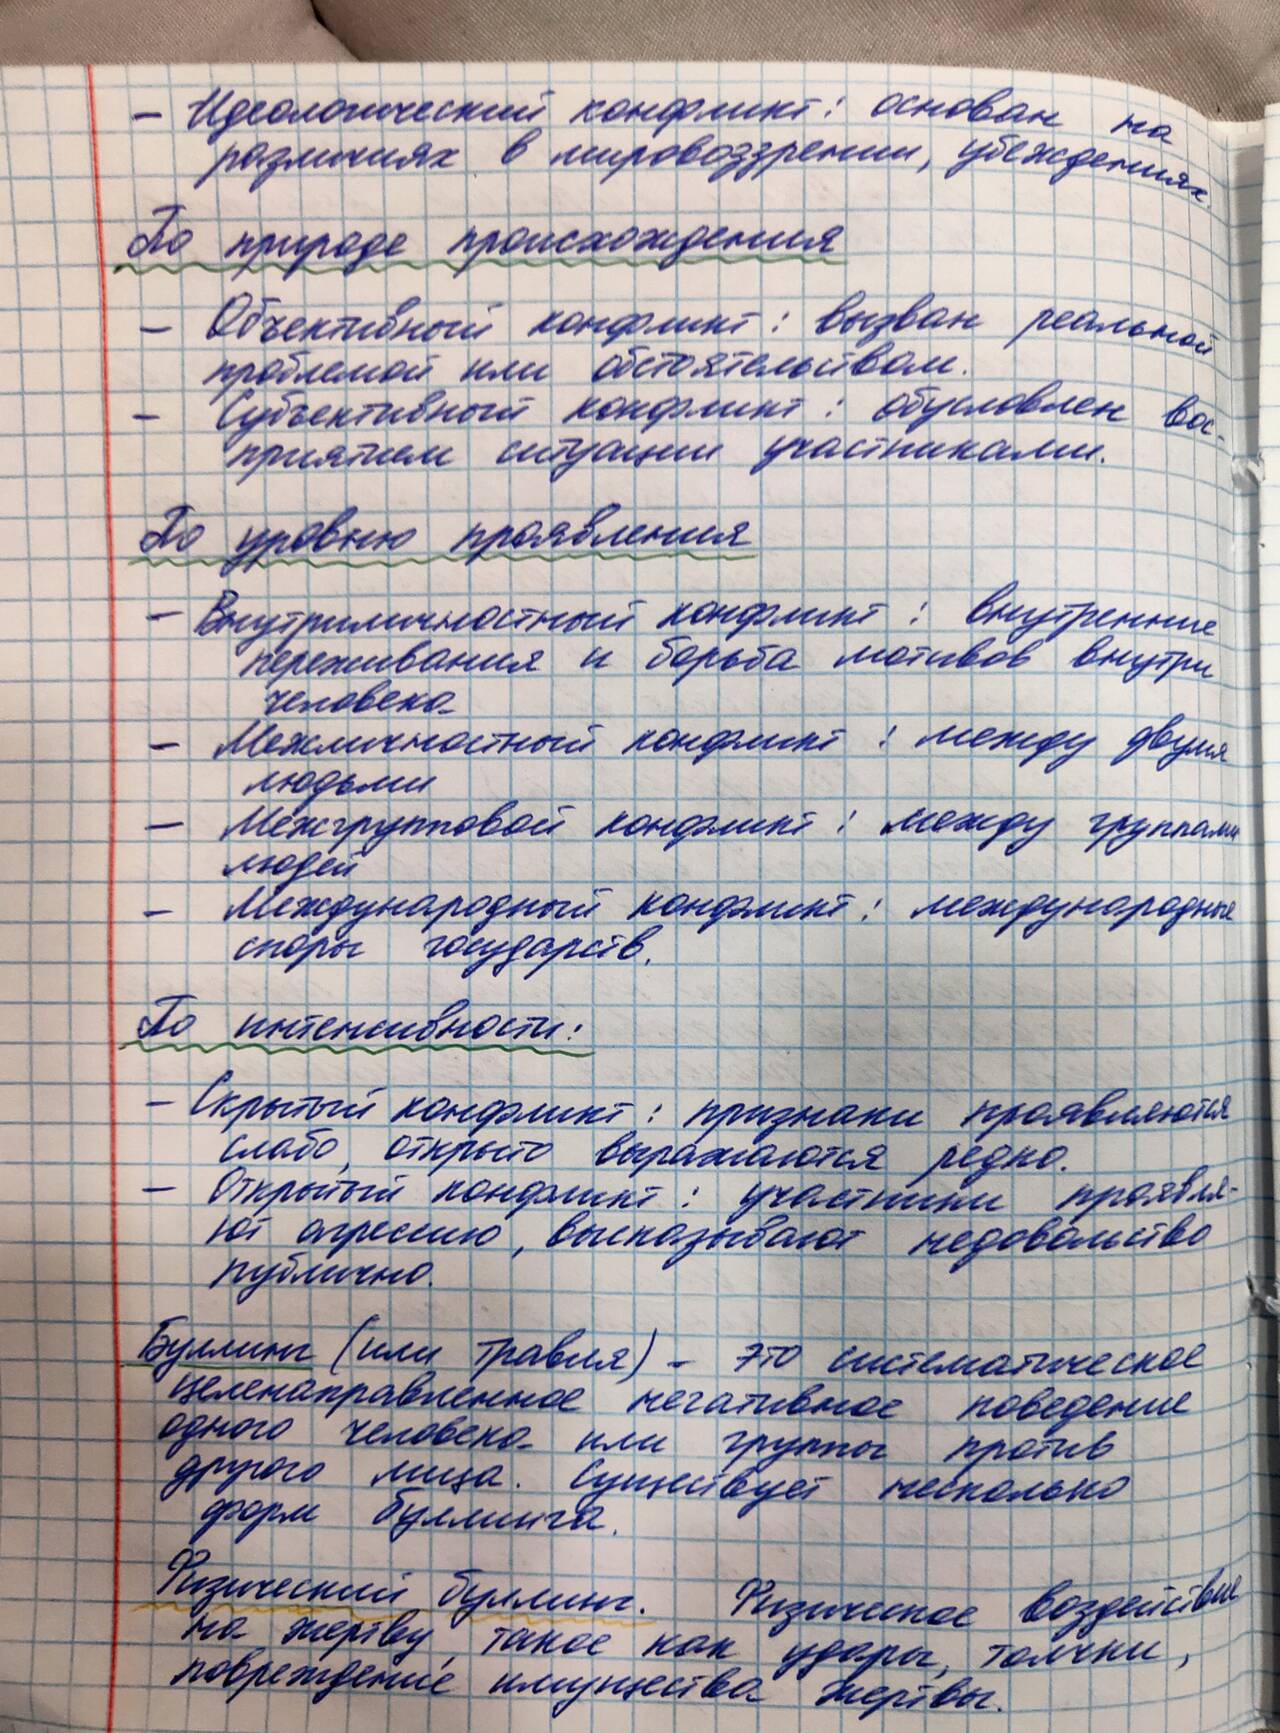 – Идеологический конфликт: основан на
различиях в мировоззрении, убеждениях.
По природе происхождения
– Объективный конфликт: вызван реальной
проблемой или обстоятельством.
– Субъективный конфликт: обусловлен вос-
приятием ситуации участниками.
По уровню проявления
– Внутриличностный конфликт: внутренние
переживания и борьба мотивов внутри
человека
– Межличностный конфликт: между двумя
людьми
– Межгрупповой конфликт: между группами
людей
– Международный конфликт: международные
споры государств.
По интенсивности:
– Скрытый конфликт: признаки проявляются
слабо, открыто выражаются редко.
– Открытый конфликт: участники проявля-
ют агрессию, высказывают недовольство
публично.
Буллинг (или травля) – это систематическое
целенаправленное негативное поведение
одного человека или группы против
другого лица. Существует несколько
форм буллинга.
Физический буллинг. Физическое воздействие
на жертву, такое как удары, толчки,
повреждение имущества жертвы.